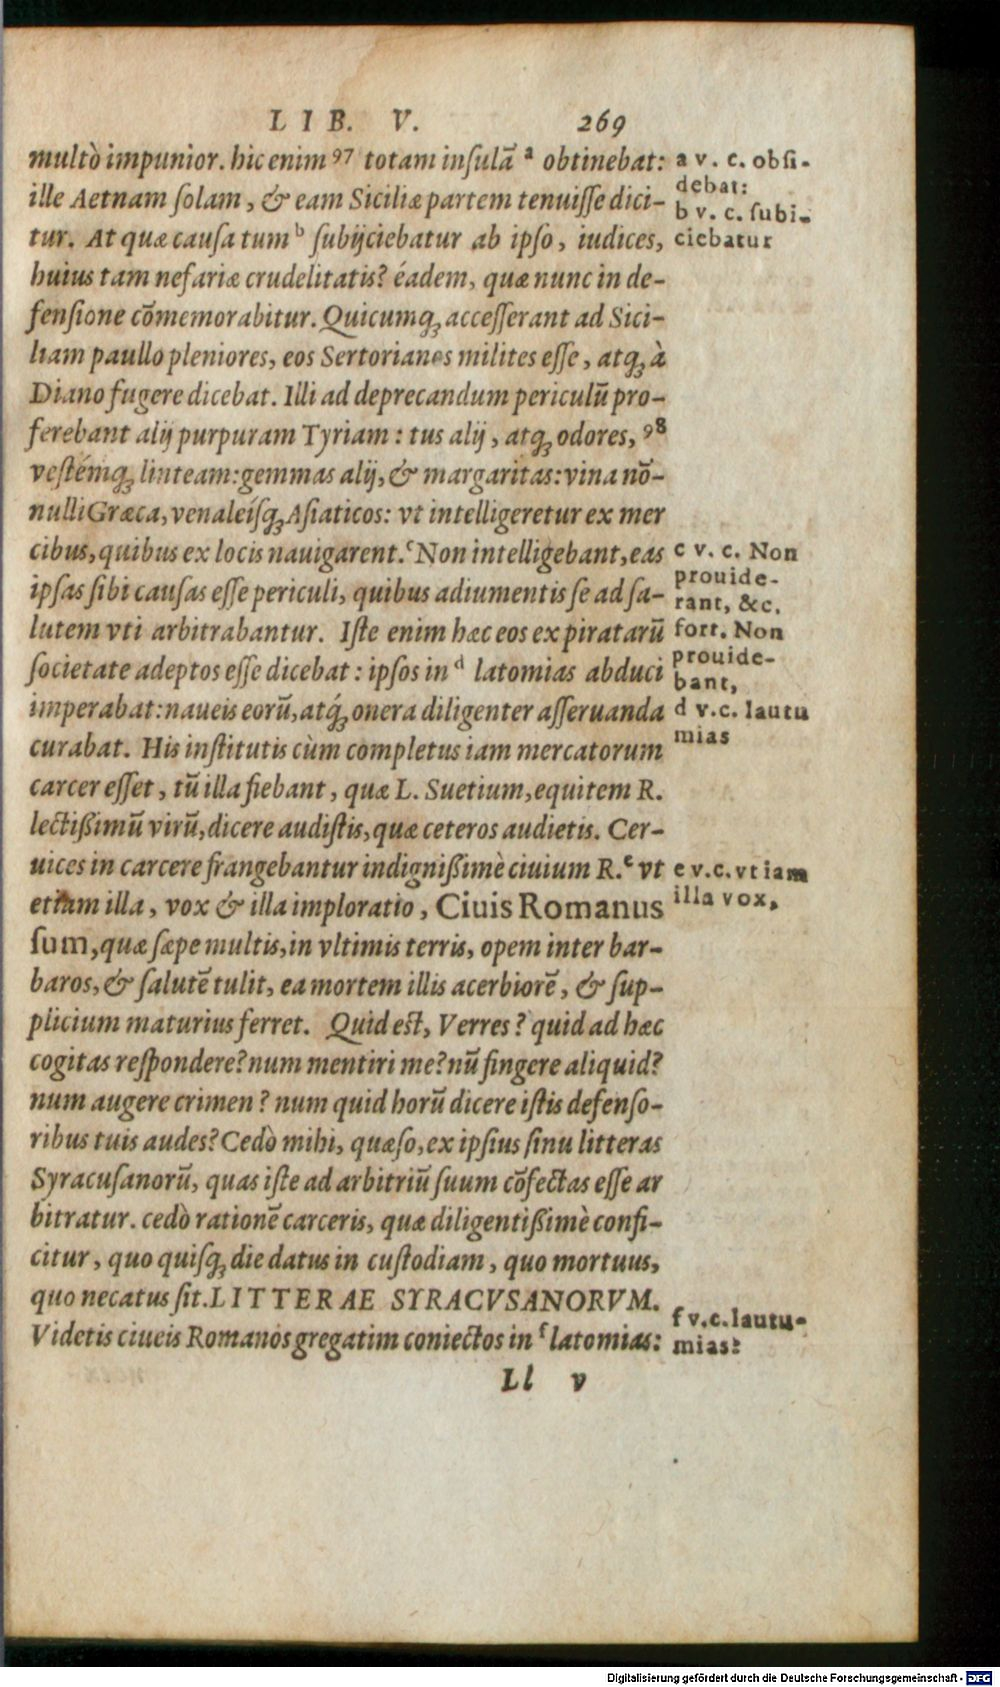 LIB. V. 269
multò impunior. hic enim 97 totam insulā a obtinebat:
ille Aetnam solam, & eam Siciliæ partem tenuisse dici-
tur. At quæ causa tum b subijciebatur ab ipso, iudices,
huius tam nefariæ crudelitatis? éadem, quæ nunc in de-
fensione cōmemorabitur. Quicumq; accesserant ad Sici-
liam paullo pleniores, eos Sertorianos milites esse, atq; à
Diano fugere dicebat. Illi ad deprecandum periculū pro-
ferebant alij purpuram Tyriam: tus alij, atq; odores, 98
vestémq; linteam: gemmas alij, & margaritas: vina nō-
nulli Græca, venaleísq; Asiaticos: vt intelligeretur ex mer
cibus, quibus ex locis nauigarent. c Non intelligebant, eas
ipsas sibi causas esse periculi, quibus adiumentis se ad sa-
lutem vti arbitrabantur. Iste enim hæc eos ex piratarū
societate adeptos esse dicebat: ipsos in d latomias abduci
imperabat: naueis eorū, atq́; onera diligenter asseruanda
curabat. His institutis cùm completus iam mercatorum
carcer esset, tū illa fiebant, quæ L. Suetium, equitem R.
lectißimū virū, dicere audistis, quæ ceteros audietis. Cer-
uices in carcere frangebantur indignißimè ciuium R. e vt
etiam illa, vox & illa imploratio, Ciuis Romanus
sum, quæ sæpe multis, in vltimis terris, opem inter bar-
baros, & salutē tulit, ea mortem illis acerbiorē, & sup-
plicium maturius ferret. Quid est, Verres? quid ad hæc
cogitas respondere? num mentiri me? nū fingere aliquid?
num augere crimen? num quid horū dicere istis defenso-
ribus tuis audes? Cedò mihi, quæso, ex ipsius sinu litteras
Syracusanorū, quas iste ad arbitriū suum cōfectas esse ar
bitratur. cedò rationē carceris, quæ diligentißimè confi-
citur, quo quisq; die datus in custodiam, quo mortuus,
quo necatus sit. LITTERAE SYRACVSANORVM.
Videtis ciueis Romanos gregatim coniectos in f latomias:
Ll v
a v. c. obsi-
debat:
b v. c. subi-
ciebatur
c v. c. Non
prouide-
rant, &c.
fort. Non
prouide-
bant,
d v.c. lautu
mias
e v.c. vt iam
illa vox,
f v.c. lautu-
mias:
Digitalisierung gefördert durch die Deutsche Forschungsgemeinschaft - DFG